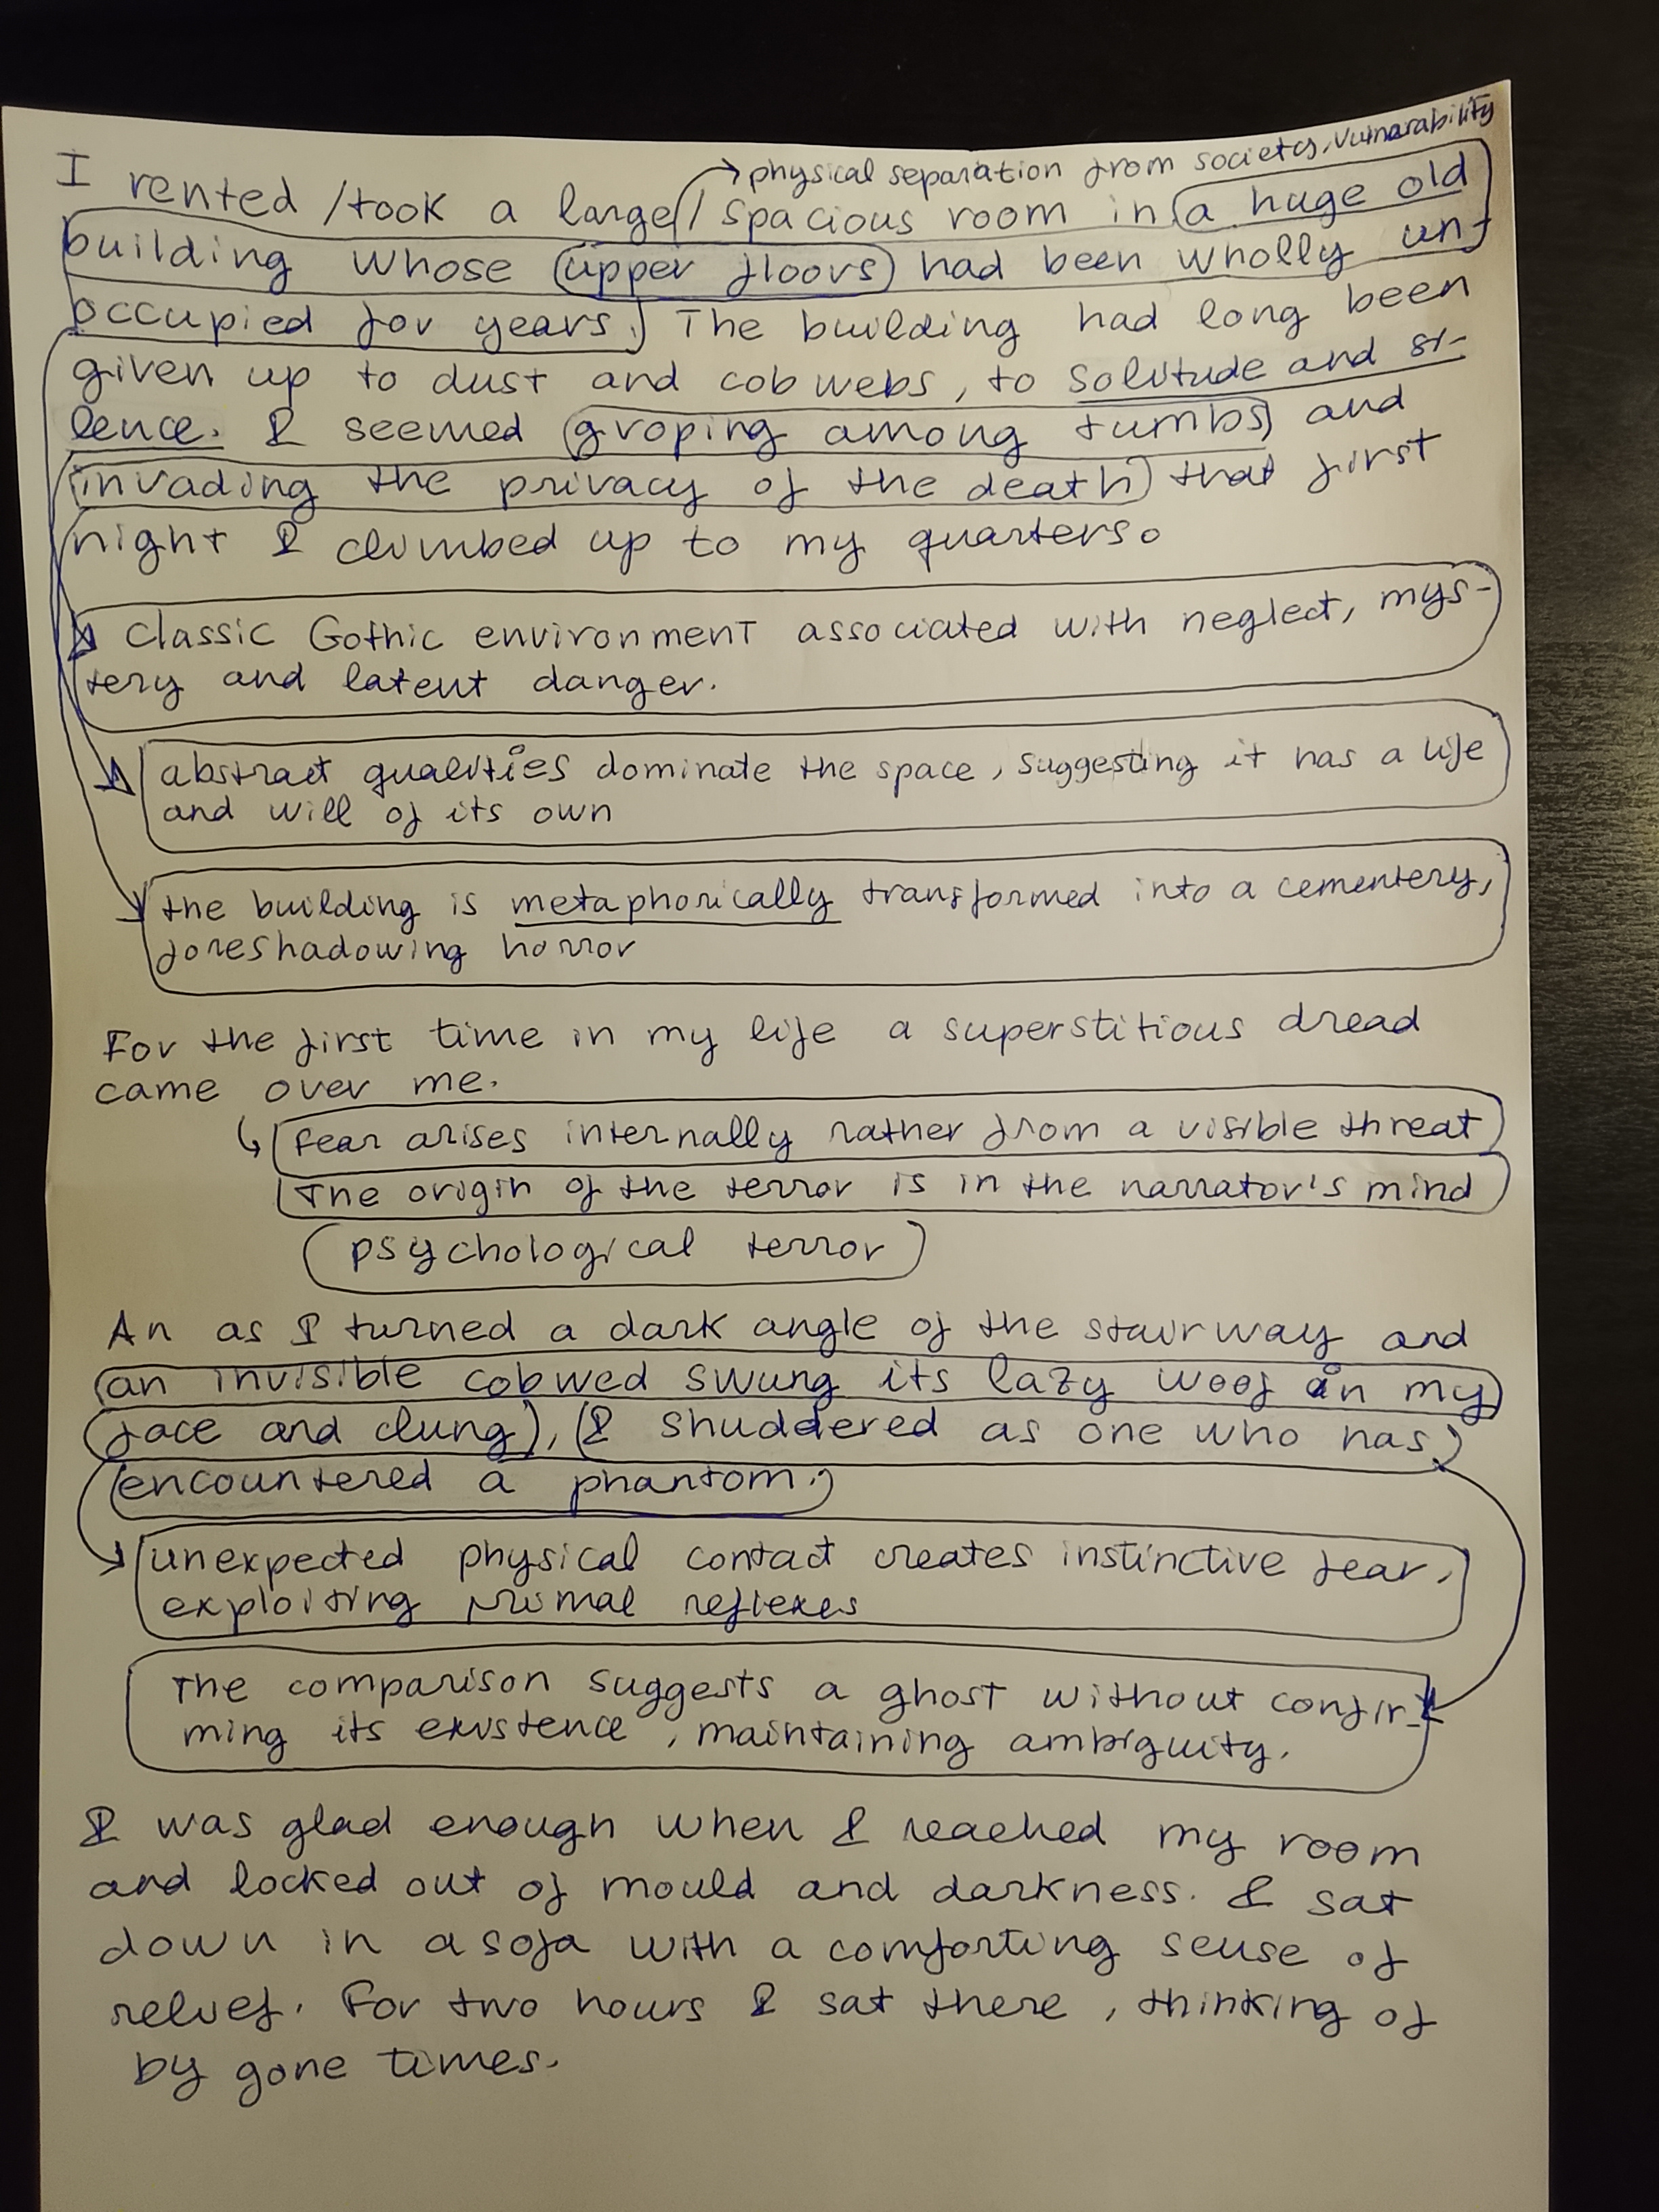 → physical separation from society, vulnarability
I rented / took a large / spacious room in a huge old
building whose upper floors had been wholly un-
occupied for years. The building had long been
given up to dust and cobwebs, to solitude and si-
lence. I seemed groping among tumbs and
invading the privacy of the death that first
night I climbed up to my quarters.
Classic Gothic environment associated with neglect, mys-
tery and latent danger.
abstract qualities dominate the space, suggesting it has a life
and will of its own
the building is metaphorically transformed into a cementery,
foreshadowing horror
For the first time in my life a superstitious dread
came over me.
Fear arises internally rather from a visible threat
The origin of the terror is in the narrator's mind
psychological terror
An as I turned a dark angle of the stairway and
an invisible cobwed swung its lazy woof in my
face and clung, I shuddered as one who has
encountered a phantom.
unexpected physical contact creates instinctive fear,
exploiting primal reflexes
The comparison suggests a ghost without confir-
ming its existence, maintaining ambiguity.
I was glad enough when I reached my room
and locked out of mould and darkness. I sat
down in a sofa with a comforting sense of
relief. For two hours I sat there, thinking of
by gone times.